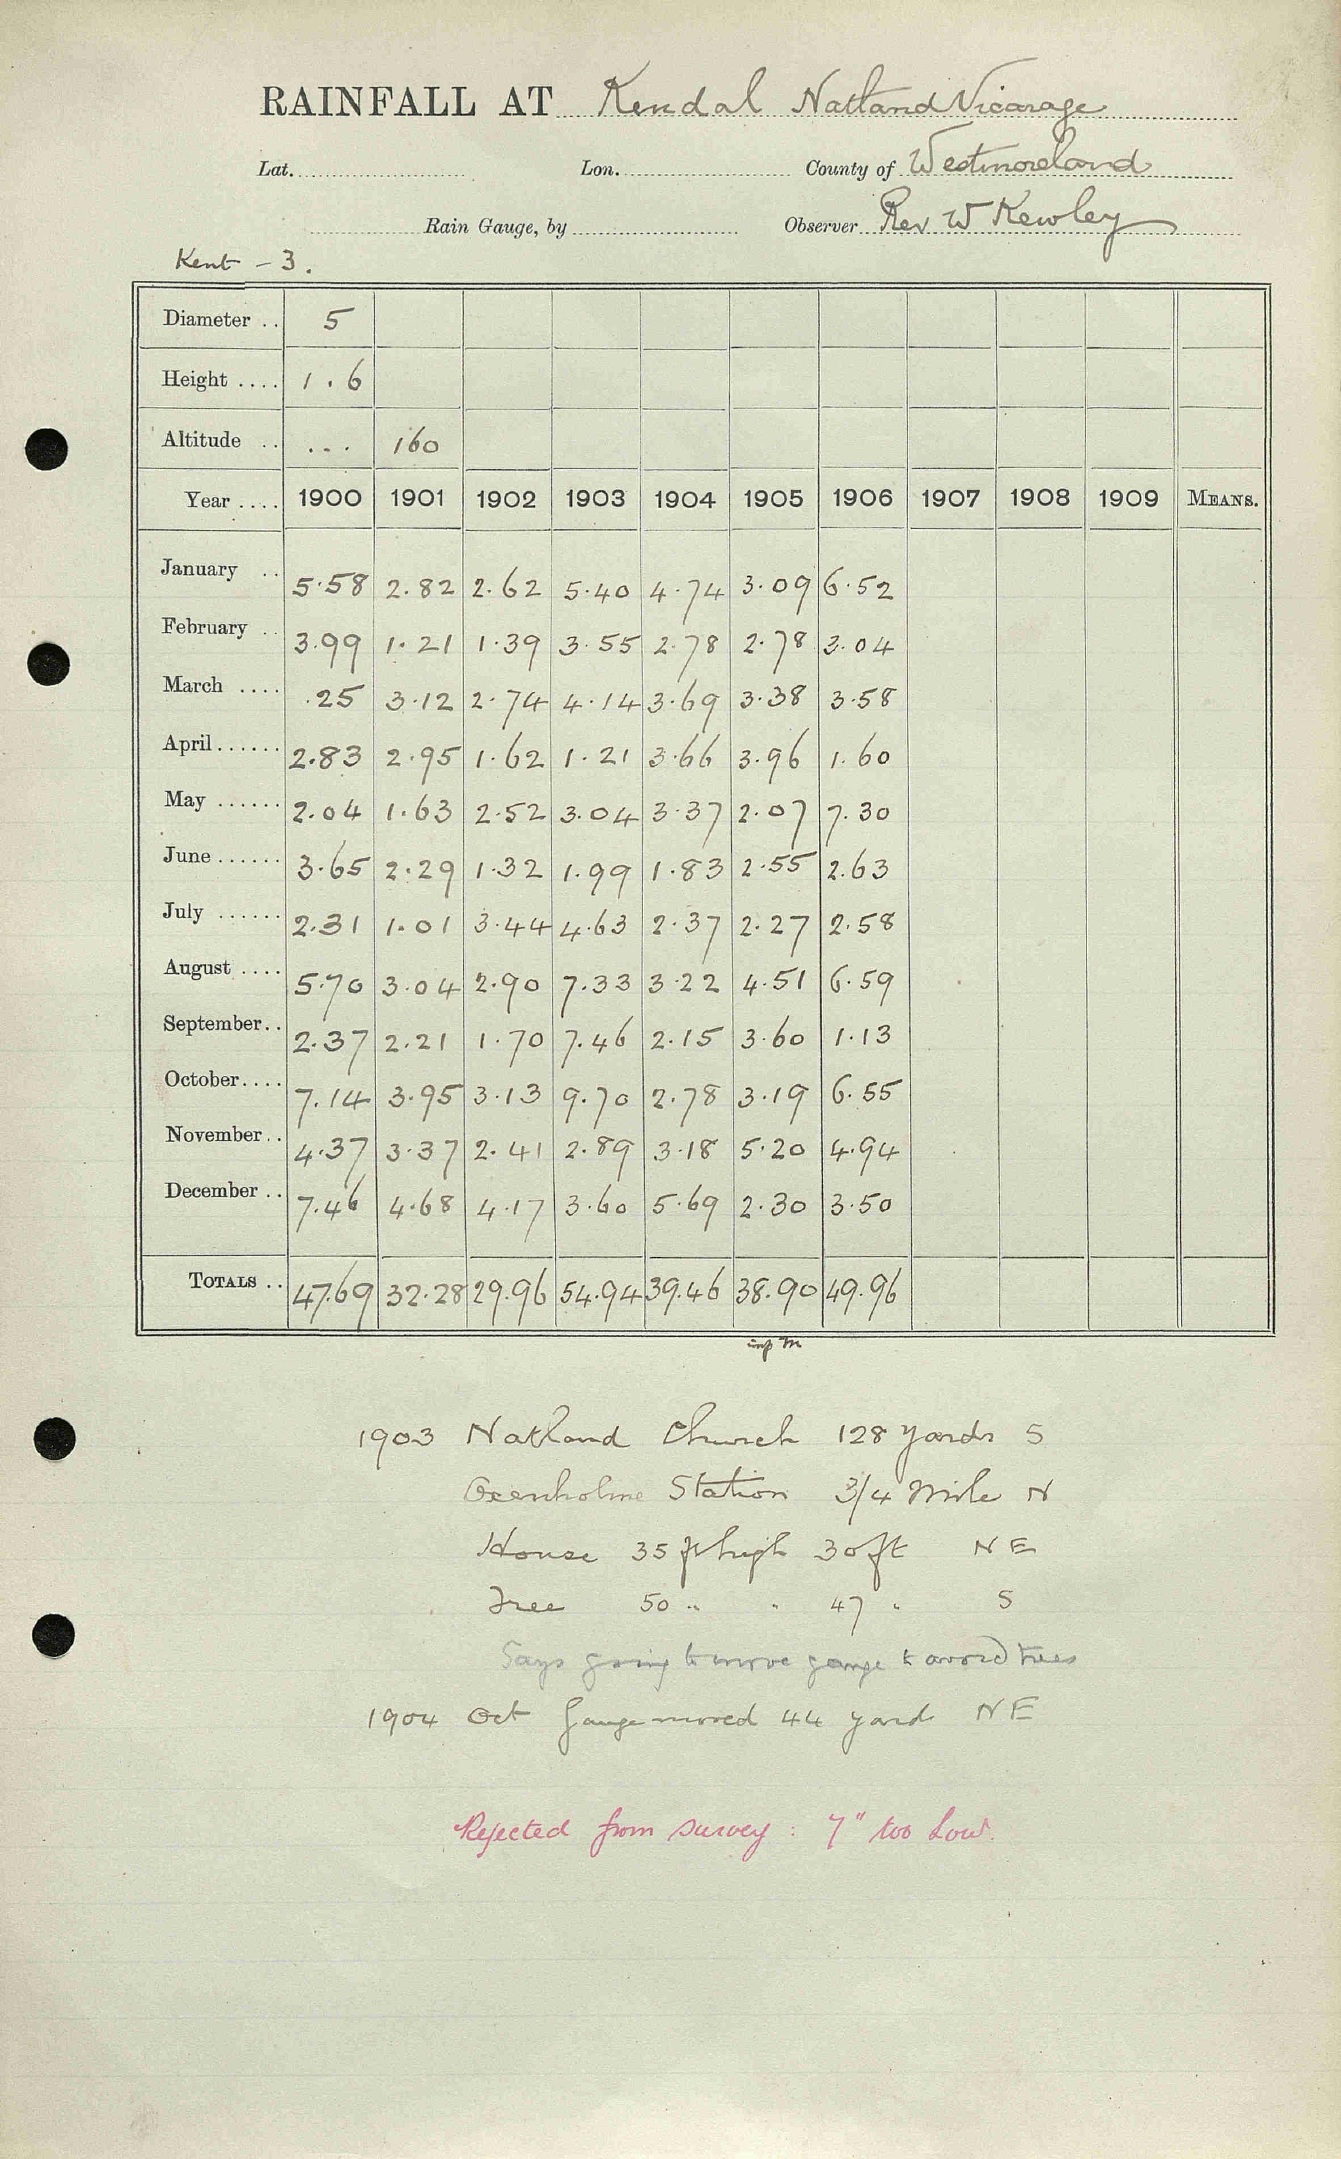 RAINFALL AT Kendal Natland Vicarage
Lat. Lon. County of Westmoreland
Rain Gauge, by Observer Rev W Kewley
Kent - 3.
Diameter .. 5
Height .... 1.6
Altitude .. ... 160
Year .... 1900 1901 1902 1903 1904 1905 1906 1907 1908 1909 MEANS.
January .. 5.58 2.82 2.62 5.40 4.74 3.09 6.52
February .. 3.99 1.21 1.39 3.55 2.78 2.78 3.04
March .... .25 3.12 2.74 4.14 3.69 3.38 3.58
April...... 2.83 2.95 1.62 1.21 3.66 3.96 1.60
May ...... 2.04 1.63 2.52 3.04 3.37 2.07 7.30
June...... 3.65 2.29 1.32 1.99 1.83 2.55 2.63
July ...... 2.31 1.01 3.44 4.63 2.37 2.27 2.58
August .... 5.70 3.04 2.90 7.33 3.22 4.51 6.59
September.. 2.37 2.21 1.70 7.46 2.15 3.60 1.13
October.... 7.14 3.95 3.13 9.70 2.78 3.19 6.55
November.. 4.37 3.37 2.41 2.89 3.18 5.20 4.94
December .. 7.46 4.68 4.17 3.60 5.69 2.30 3.50
TOTALS .. 47.69 32.28 29.96 54.94 39.46 38.90 49.96
1903 Natland Church 128 yards S
Oxenholme Station 3/4 Mile N
House 35 ft high 30 ft NE
Tree 50 " " 47 " S
Says going to move gauge to avoid trees
1904 Oct Gauge moved 44 yard NE
Rejected from survey : 7" too low.